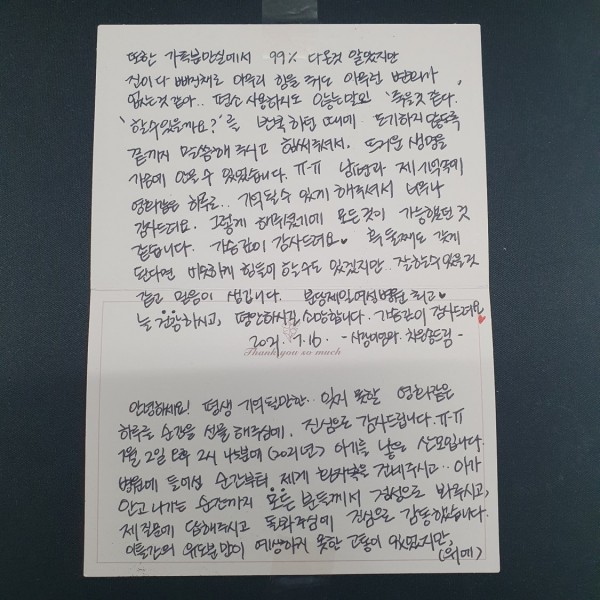 또한 가족분만실에서 99% 다온것 알았지만
진이 다 빠진채로 아무리 힘을 줘도 아무런 변화가
없는것 같아.. 평소 사용하지도 않는말인 '죽을것 같다.
'할수있을까요?'를 반복하던 때에 포기하지 않도록
끝까지 말씀해 주시고 힘써주셔서, 뜨거운 생명을
가슴에 안을 수 있었습니다. ㅠ-ㅠ 남편과 제 기억속에
영화같은 하루로.. 기억될수 있게 해주셔서 너무나
감사드려요. 그렇게 해주셨기에 모든것이 가능했던 것
같습니다. 가슴깊이 감사드려요♥ 혹 둘째도 갖게
된다면 비슷하게 힘들어 할수도 있겠지만.. 잘할수있을것
같은 믿음이 생깁니다. 분당제일여성병원 최고♥
늘 건강하시고, 평안하시길 소망합니다. 가슴깊이 감사드려요
2021. 7.16. - 드림 -
Thank you so much
안녕하세요! 평생 기억될만한.. 잊지 못할 영화같은
하루를 순간을 선물해주심에, 진심으로 감사드립니다. ㅠ-ㅠ
7월 2일 오후 2시 45분에 (2021년) 아기를 낳은 산모입니다.
병원에 들어선 순간부터 제게 한마디를 건네주시고.. 아가
안고 나가는 순간까지 모든 분들께서 정성으로 봐주시고,
제 질문에 답해주시고 돌봐주심에 진심으로 감동했습니다.
이틀간의 유도분만이 예상하지 못한 고통이 있었지만,
(위에)